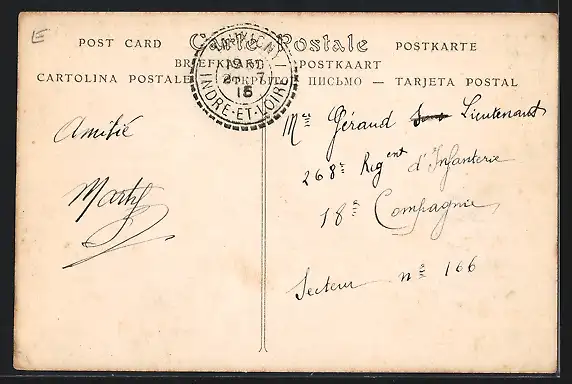 E
POST CARD Carte Postale POSTKARTE
BRIEFKAART POSTKAART
CARTOLINA POSTALE ОТКРЫТОЕ ПИСЬМО — TARJETA POSTAL
INDRE-ET-LOIRE
15
Amitié
Marty
Mr Géraud Lieutenant
268e Regent d'Infanterie
18e Compagnie
Secteur no 166